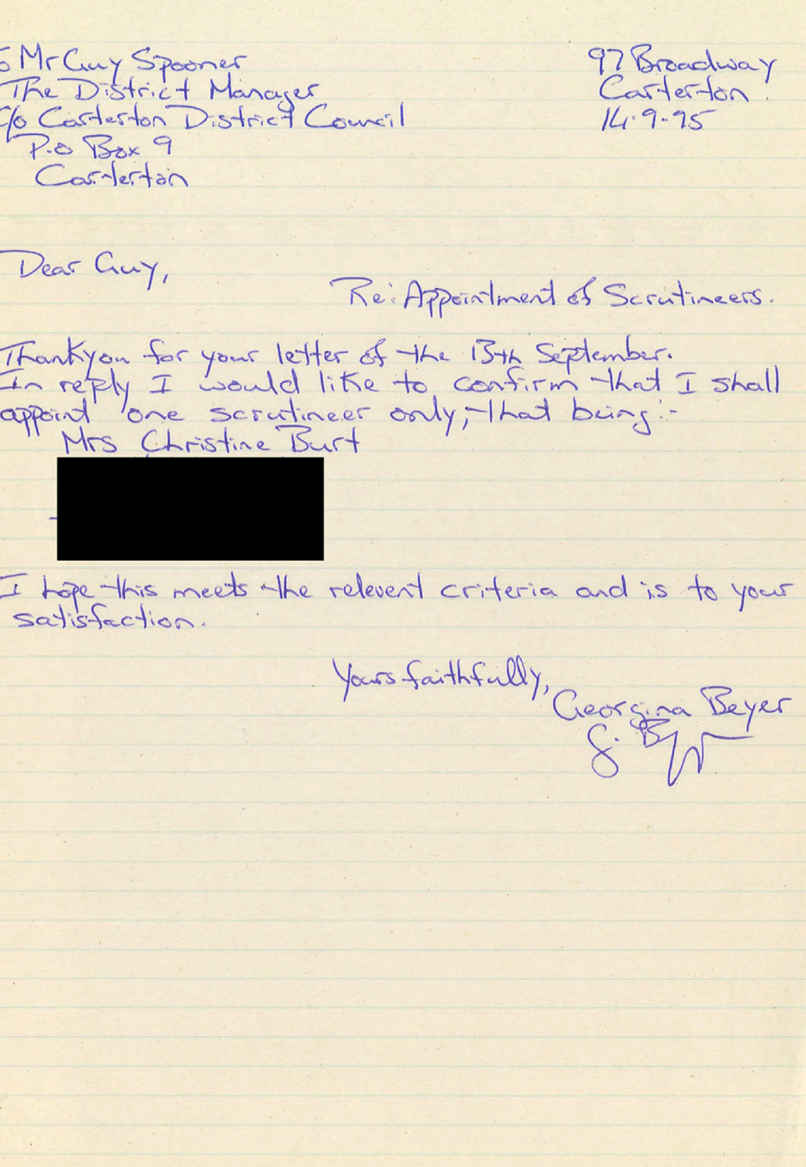 Mr Guy Spooner
The District Manager
c/o Carterton District Council
P.O Box 9
Carterton
97 Broadway
Carterton
14.9.95
Dear Guy,
Re: Appointment of Scrutineers.
Thankyou for your letter of the 13th September.
In reply I would like to confirm that I shall
appoint one scrutineer only, that being:-
Mrs Christine Burt
I hope this meets the relevent criteria and is to your
satisfaction.
Yours faithfully,
Georgina Beyer